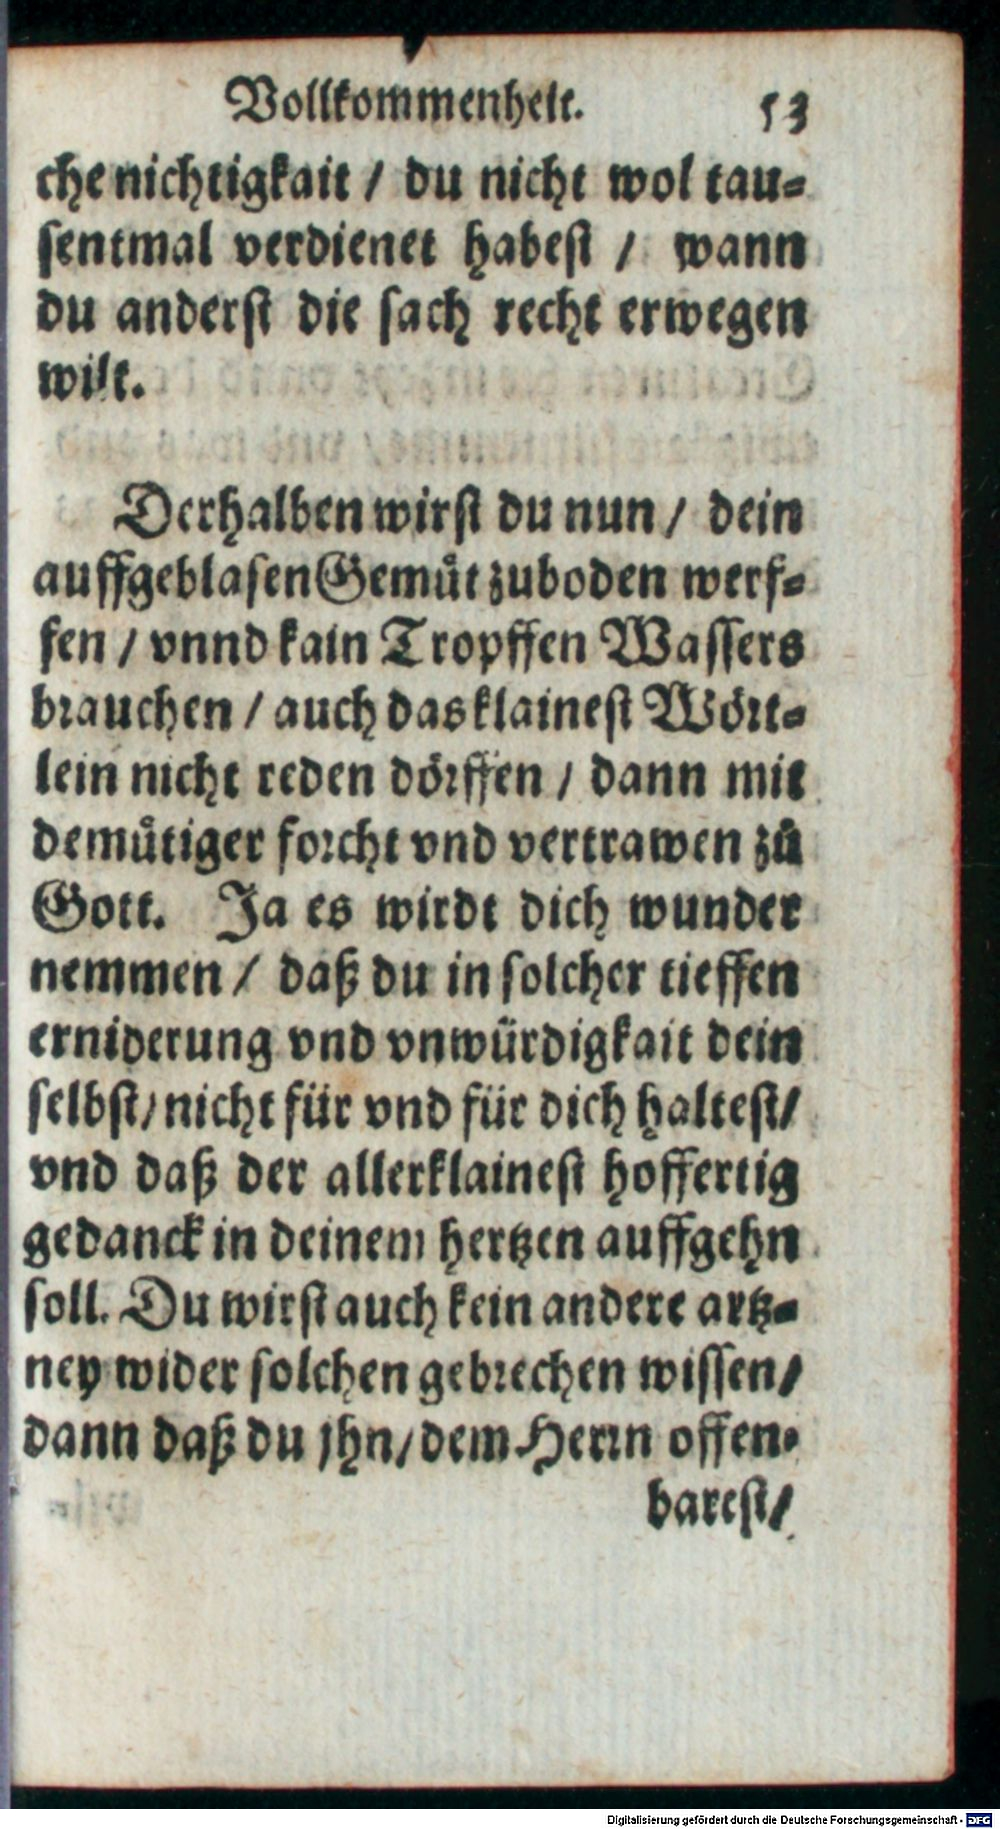 Vollkommenheit. 53
che nichtigkait / du nicht wol tau-
sentmal verdienet habest / wann
du anderst die sach recht erwegen
wilt.
Derhalben wirst du nun / dein
auffgeblasen Gemuͤt zuboden werf-
fen / vnnd kain Tropffen Wassers
brauchen / auch das klainest Woͤrt-
lein nicht reden doͤrffen / dann mit
demuͤtiger forcht vnd vertrawen zuͦ
Gott. Ja es wirdt dich wunder
nemmen / daß du in solcher tieffen
erniderung vnd vnwürdigkait dein
selbst / nicht für vnd für dich haltest /
vnd daß der allerklainest hoffertig
gedanck in deinem hertzen auffgehn
soll. Du wirst auch kein andere artz-
ney wider solchen gebrechen wissen /
dann daß du jhn / dem Herrn offen-
barest /
Digitalisierung gefördert durch die Deutsche Forschungsgemeinschaft - DFG